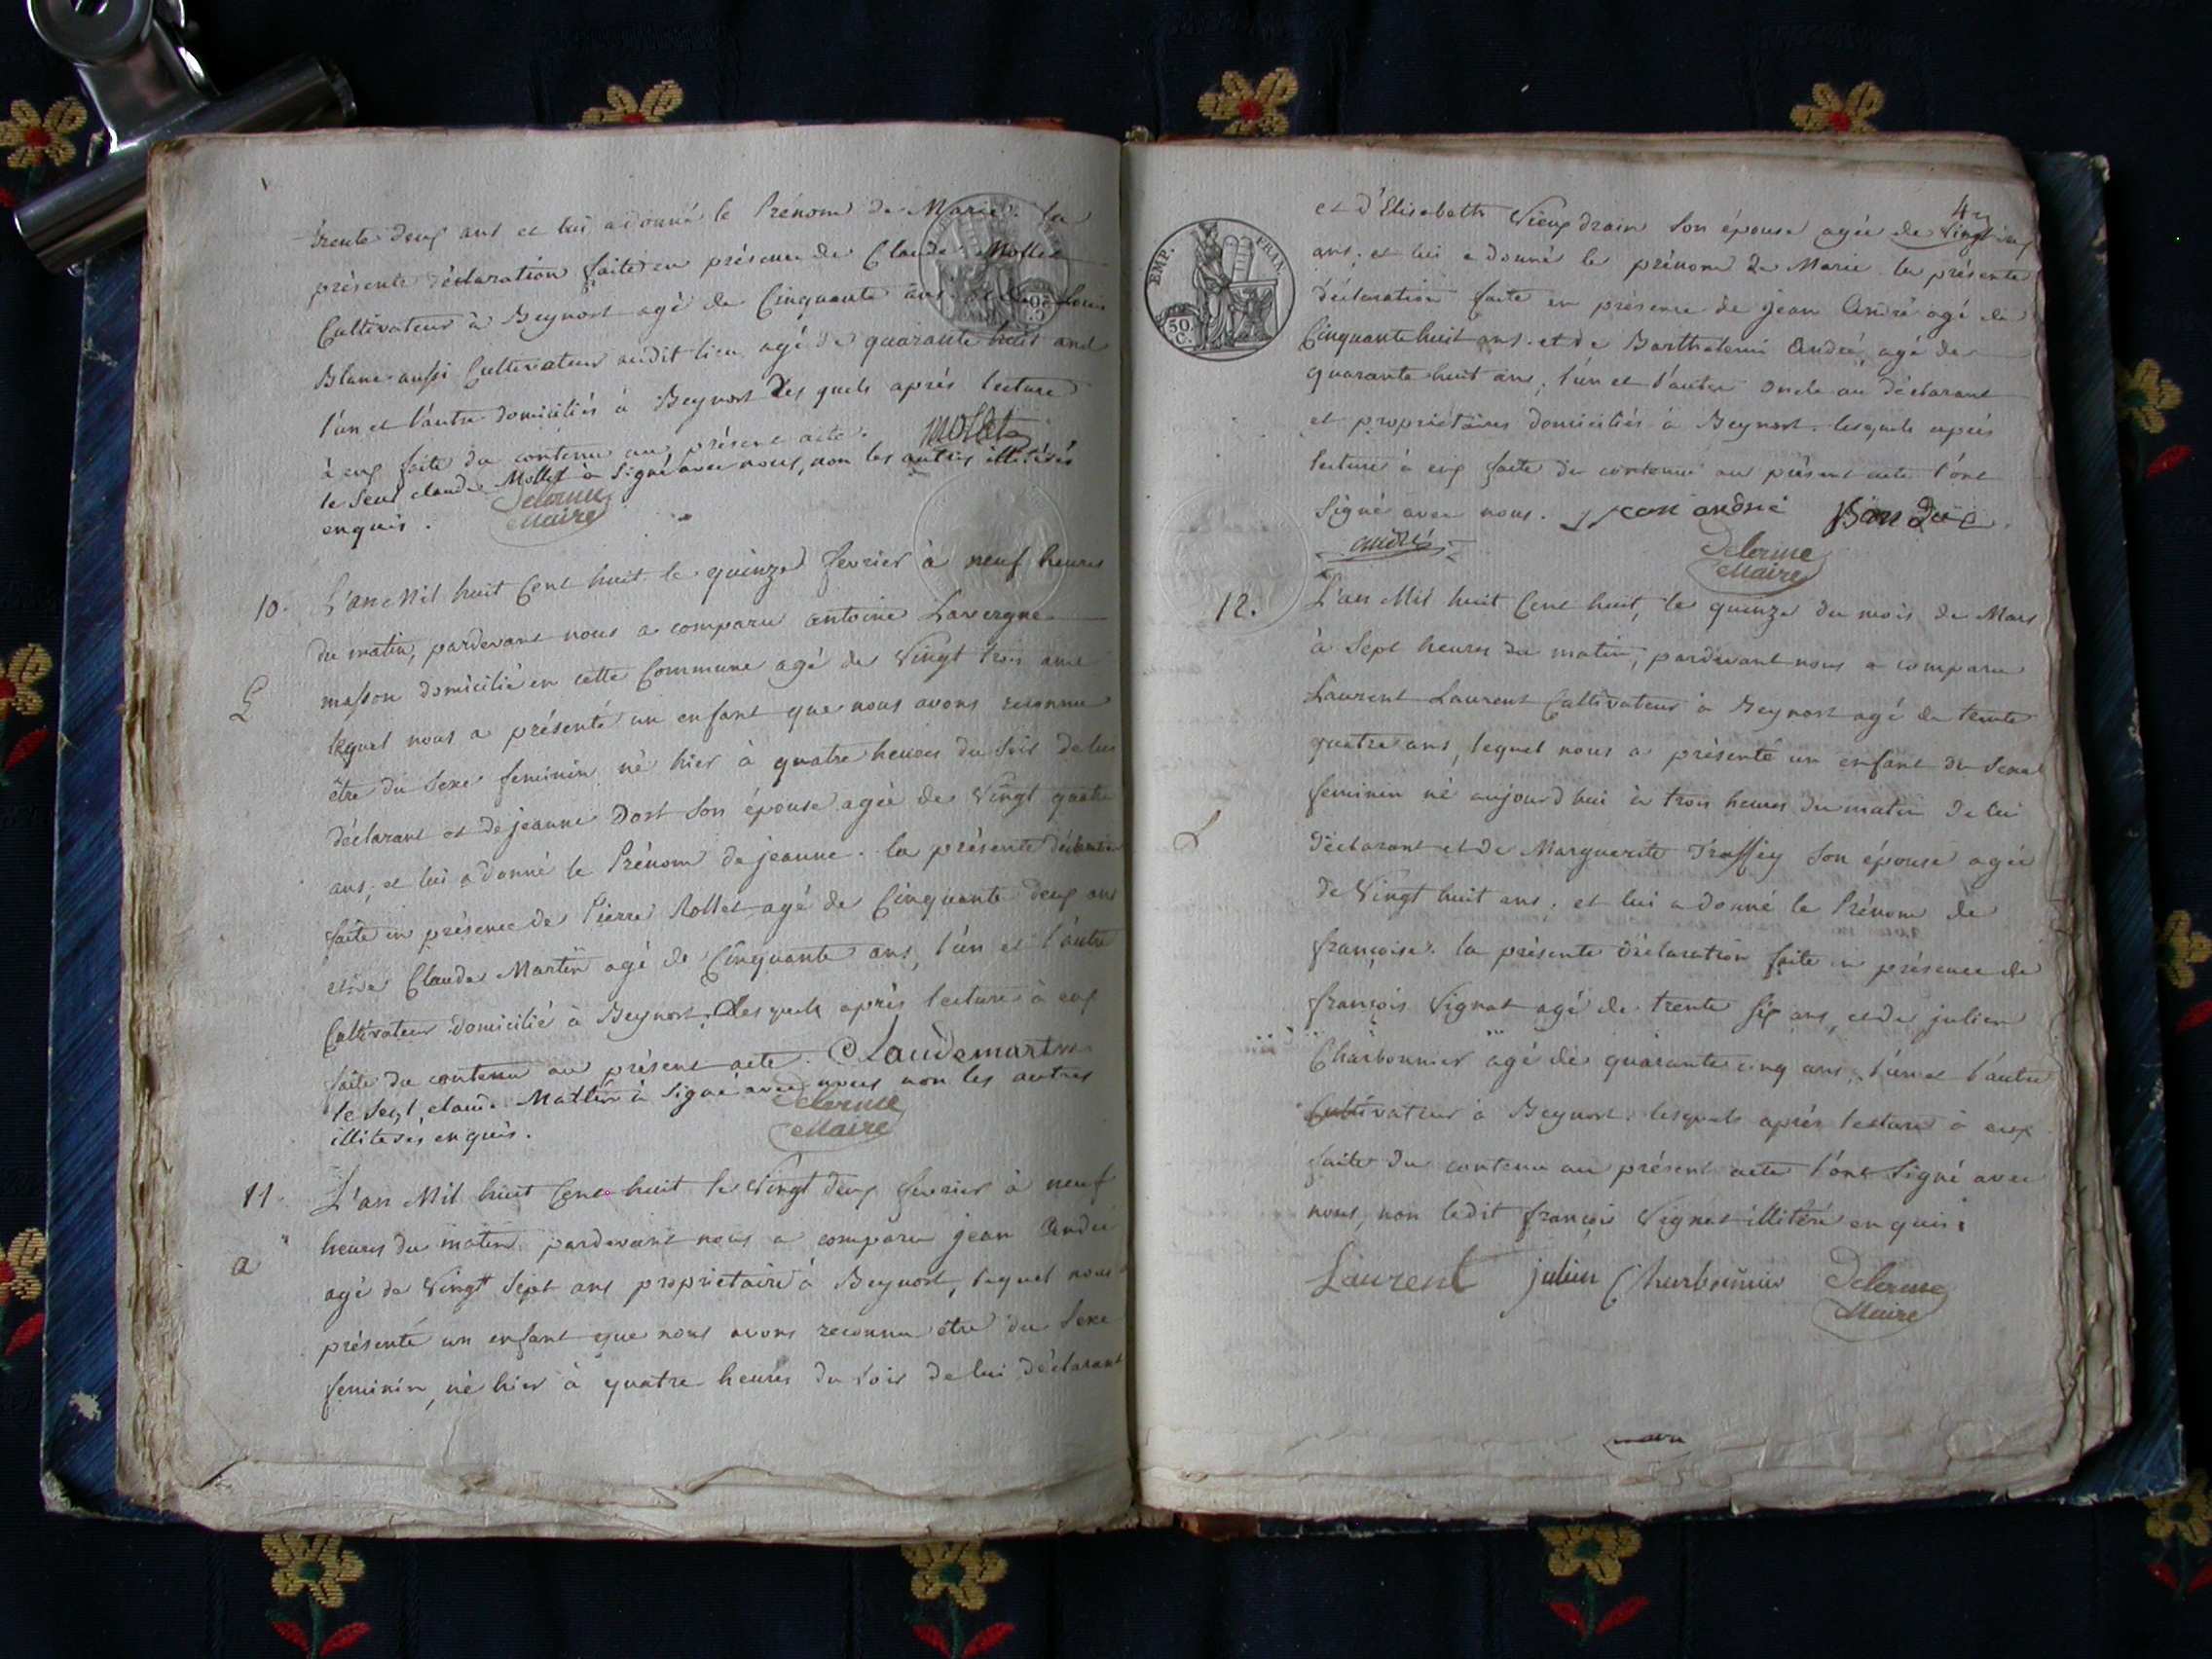 trente deux ans et lui a donné le Prénom de Marie. la
présente déclaration faite en présence de Claude Mollet
Cultivateur à Beynost agé de Cinquante ans et de Louis
Blanc aussi Cultivateur audit lieu agé de quarante huit ans
l'un et l'autre domiciliés à Beynost Les quels après lecture
à eux faite du contenu au présent acte. mollet
le seul claude Mollet à Signé avec nous, non les autres illitérés
enquis. Delorme
Maire
10. L'an Mil huit Cent huit le quinze fevrier à neuf heures
du matin, pardevant nous a comparu antoine Lavergne
masson domicilié en cette Commune agé de Vingt trois ans
L
lequel nous a présenté un enfant que nous avons reconnu
être du Sexe feminin né hier à quatre heures du Soir de lui
déclarant et de jeanne Dost Son épouse agée de Vingt quatre
ans, et lui a donné le Prénom de jeanne. la présente déclaration
faite en présence de Pierre Rollet agé de Cinquante deux ans
et de Claude Martin agé de Cinquante ans, l'un et l'autre
Cultivateur domicilié à Beynost, Les quels après lecture à eux
faite du contenu au présent acte. Claude martin
le Seul claude Martin à Signé avec nous non les autres
illiterés enquis. Delorme
Maire
11. L'an Mil huit Cent huit le Vingt deux fevrier à neuf
a
heures du matin pardevant nous a comparu jean André
agé de Vingt Sept ans proprietaire à Beynost, lequel nous
présenté un enfant que nous avons reconnu être du Sexe
feminin, né hier à quatre heures du Soir de lui déclarant
EMP. FRAN.
50 C.
et d'Elisabeth Vieux drain Son épouse agée de Vingt
ans, et lui a donné le prénom de Marie. la présente
déclaration faite en présence de jean André agé de
Cinquante huit ans. et de Barthelemi André, agé de
quarante huit ans, l'un et l'autre oncle au déclarant
et propriétaires domiciliés à Beynost. lesquels après
lecture à eux faite du contenu au présent acte l'ont
Signé avec nous. jean andré
andré
Delorme
Maire
12. L'an Mil huit Cent huit, le quinze du mois de Mars
à Sept heures du matin, pardevant nous a comparu
Laurent Laurent Cultivateur à Beynost agé de trente
quatre ans, lequel nous a présenté un enfant du Sexe
feminin né aujourd'hui à trois heures du matin de lui
L
déclarant et de Marguerite Son épouse agée
de Vingt huit ans. et lui a donné le Prénom de
françoise. la présente déclaration faite en présence de
françois Vignat agé de trente Six ans, et de julien
Charbonnier agé de quarante cinq ans, l'un et l'autre
Cultivateur à Beynost. lesquels après lecture à eux
faite du contenu au présent acte l'ont Signé avec
nous, non ledit françois Vignat illitéré enquis.
Laurent julien Charbonnier Delorme
Maire